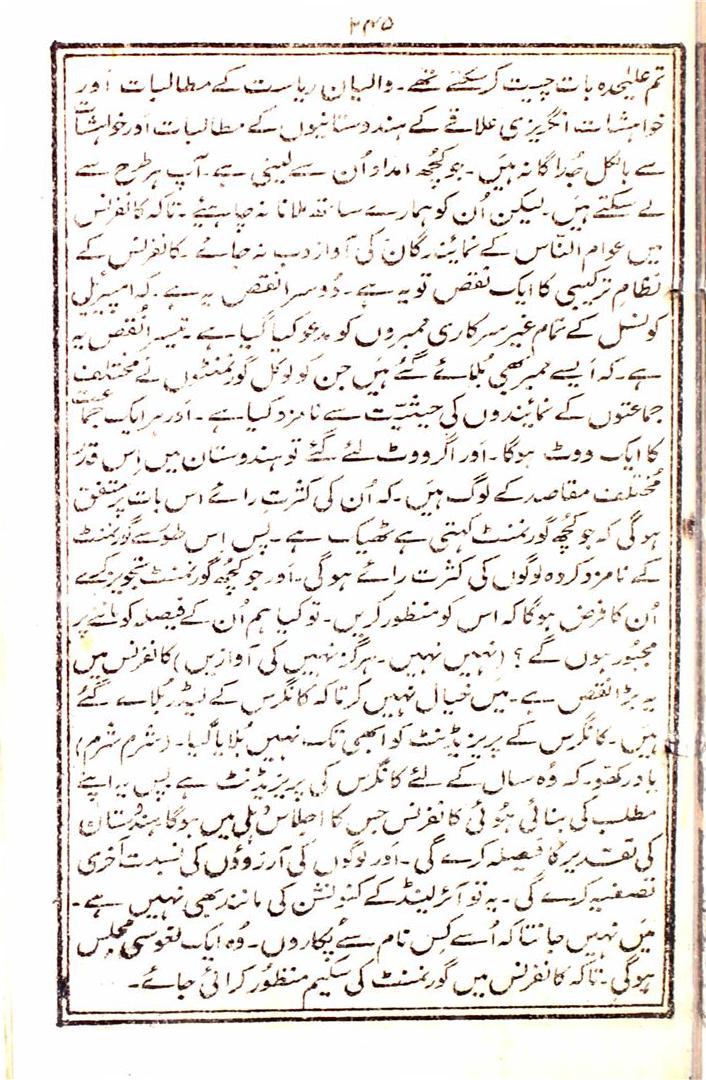 ۲۴۵
تم علیٰحدہ بات چیت کر سکتے تھے۔ والیان ریاست کے مطالبات اور
خواہشات انگریزی علاقے کے ہندوستانیوں کے مطالبات اور خواہشات
سے بالکل جُداگانہ ہیں۔ جو کچھ امداد اُن سے لینی ہے۔ آپ ہر طرح سے
لے سکتے ہیں۔ لیکن اُن کو ہمارے ساتھ ملانا نہ چاہیئے۔ تاکہ کانفرنس
میں عوام الناس کے نمائیندگان کی آواز دب نہ جائے۔ کانفرنس کے
نظامِ ترکیبی کا ایک نقص تو یہ ہے۔ دُوسرا نقص یہ ہے۔ کہ امپیرئیل
کونسل کے تمام غیر سرکاری ممبروں کو مدعو کیا گیا ہے۔ تیسرا نُقص یہ
ہے۔ کہ اَیسے ممبر بھی بُلائے گئے ہیں جن کو لوکل گورنمنٹوں نے مختلف
جماعتوں کے نمائیندوں کی حیثیّت سے نامزد کیا ہے۔ اَور ہر ایک جماعت
کا ایک ووٹ ہوگا۔ اَور اگر ووٹ لئے گئے تو ہندوستان میں اِس قدر
مُختلف مقاصد کے لوگ ہیں۔ کہ اُن کی کثرتِ رائے اس بات پر متفق
ہوگی کہ جو کُچھ گورنمنٹ کہتی ہے ٹھیک ہے۔ پس اِس طور سے گورنمنٹ
کے نامزد کردہ لوگوں کی کثرت رائے ہوگی۔ اَور جو کچھ گورنمنٹ تجویز کرے
اُن کا فرض ہوگا کہ اس کو منظور کریں۔ تو کیا ہم اُن کے فیصلہ کو ماننے پر
مجبُور ہوں گے؟ (نہیں نہیں۔ ہرگز نہیں کی آوازیں) کانفرنس میں
یہ بڑا نقص ہے۔ میں خیال نہیں کرتا کہ کانگرس کے لیڈر بُلائے گئے
ہیں۔ کانگرس کے پریزیڈنٹ کو ابھی تک نہیں بُلایا گیا۔ (شرم شرم)
یاد رکھو۔ کہ وُہ سال کے لئے کانگرس کی پریزیڈنٹ ہے۔ پس یہ اپنے
مطلب کی بنائی ہُوئی کانفرنس جس کا اجلاس دہلی میں ہوگا ہندُوستان
کی تقدیر کا فیصلہ کرے گی۔ اَور لوگوں کی آرزوؤں کی نسبت آخری
تصفیہ کرے گی۔ یہ تو آئرلینڈ کے کنونشن کی مانند بھی نہیں ہے۔
مَیں نہیں جانتا کہ اُسے کس نام سے پُکاروں۔ وُہ ایک لغو سی مجلس
ہوگی۔ تاکہ کانفرنس میں گورنمنٹ کی سکیم منظُور کرائی جائے۔